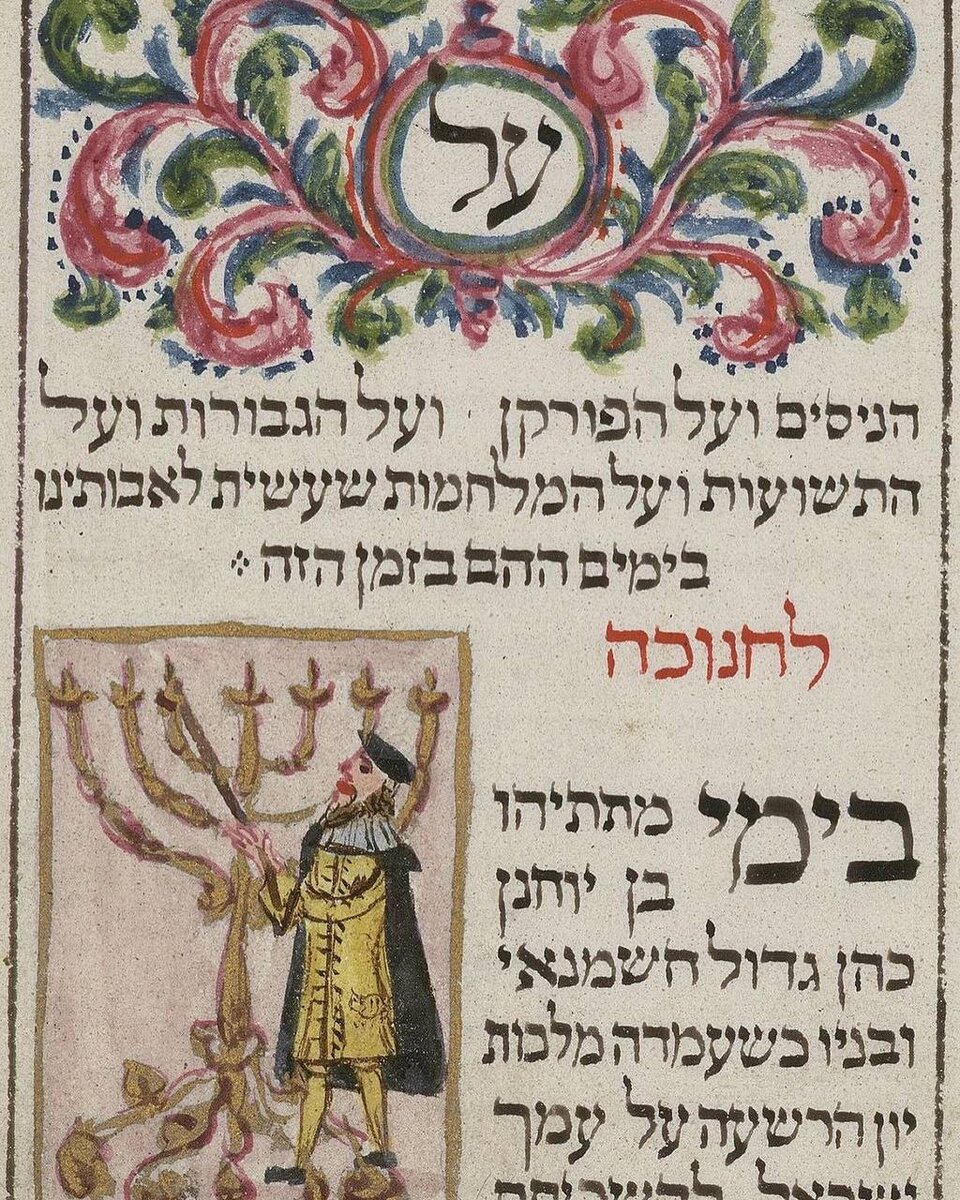 על
הניסים ועל הפורקן . ועל הגבורות ועל
התשועות ועל המלחמות שעשית לאבותינו
בימים ההם בזמן הזה
לחנוכה
בימי מתתיהו
בן יוחנן
כהן גדול חשמנאי
ובניו כשעמדה מלכות
יון הרשעה על עמך
ישראל להשכיחם